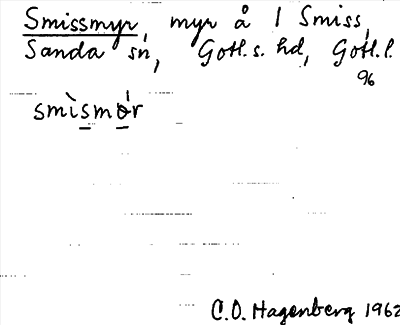 Smissmyr, myr å 1 Smiss,
Sanda sn, Gotl.s. hd, Gotl.l.
%
smìsmǿr
C.O. Hagenberg 1962